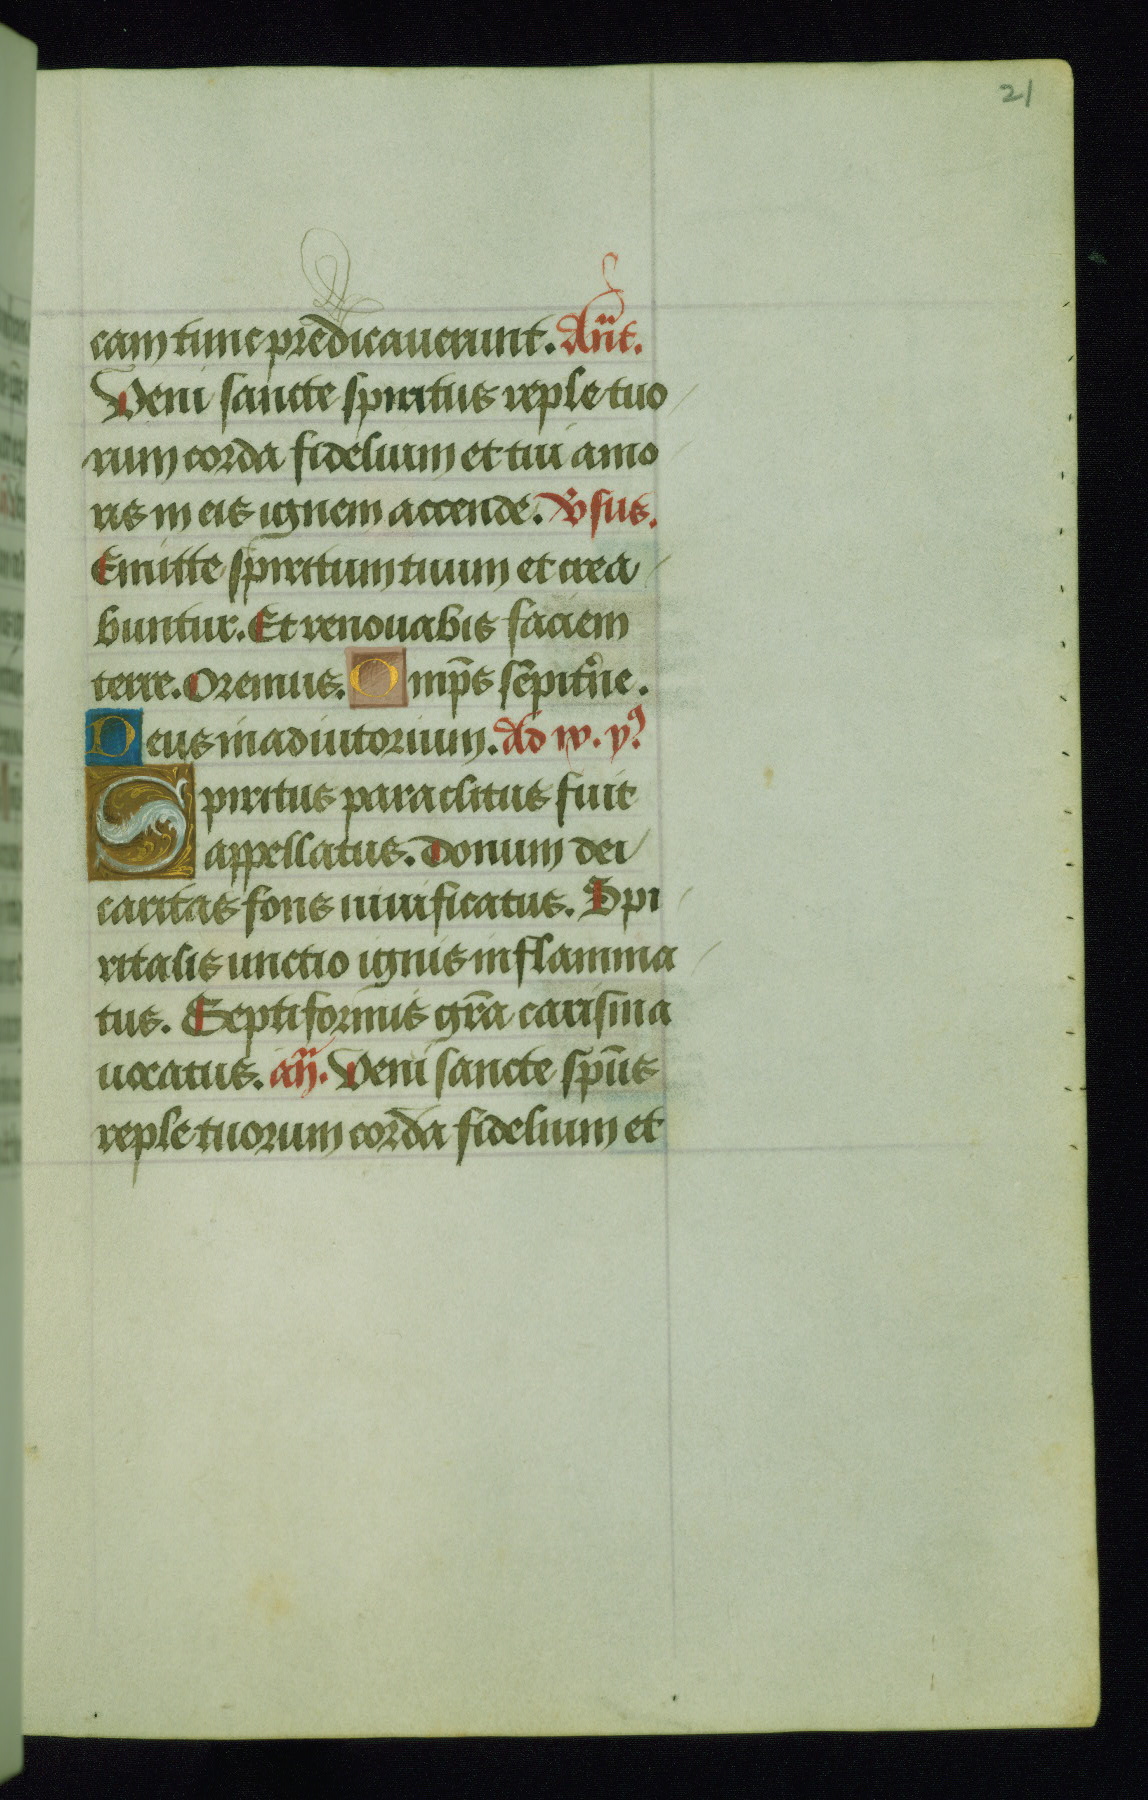 21
cam tunc p̄redicauerunt. An̄t.
Veni sancte spiritus reple tuo
rum corda fidelium et tui amo
ris in eis ignem accende. V̾sus.
Emitte spiritum tuum et crea
buntur. Et renouabis faciem
terre. Oremus. Omp̄s sēpit̾ne.
Deus in adiutorium. Ad
Spiritus paraclitus fuit
appellatus. Donum dei
caritas fons uiuificatus. Spi
ritalis unctio ignis inflamma
tus. Septiformis gr̄a carisma
uocatus. an̄. Veni sancte sp̄us
reple tuorum corda fidelium et